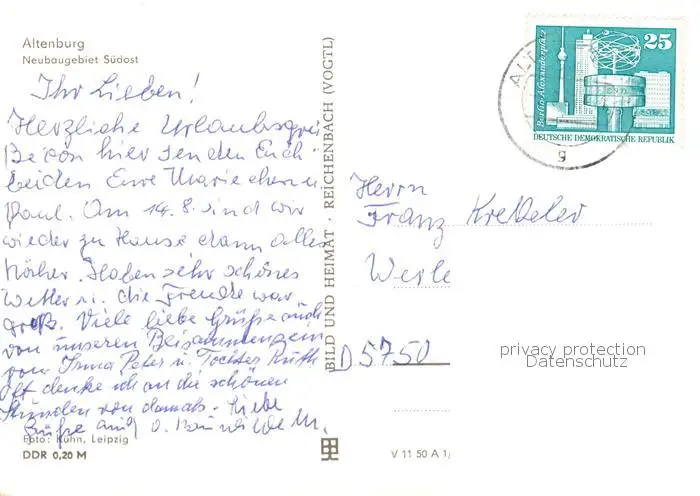 Altenburg
Neubaugebiet Südost
Ihr Lieben!
Herzliche Urlaubsgrüße
von hier senden Euch
beiden Eure Mariechen u.
Paul. Am 14.8. sind wir
wieder zu Hause dann alles
näher. Haben sehr schönes
Wetter u. die Freude war
groß. Viele liebe Grüße auch
von unseren Beisammensein
von Irma Peter u. Tochter Ruth
Oft denke ich an die schönen
Stunden von damals. Liebe
Grüße auch
Foto: Kühn, Leipzig
DDR 0,20 M
BILD UND HEIMAT · REICHENBACH (VOGTL)
V 11 50 A 1/
25
Berlin-Alexanderplatz
DEUTSCHE DEMOKRATISCHE REPUBLIK
ALT
g
Herrn
Franz
Werl
D 5750
privacy protection
Datenschutz